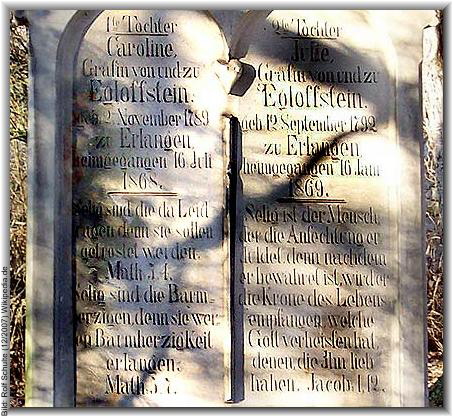 1te Tochter
Caroline,
Gräfin von und zu
Egloffstein.
geb. 2 November 1789
zu Erlangen,
heimgegangen 16 Juli
1868.
Selig sind die da Leid
tragen denn sie sollen
getröstet werden.
Math. 5,4.
Selig sind die Barm-
herzigen, denn sie wer
en Barmherzigkeit
erlangen.
Math. 5,7.
2te Tochter
Julie,
Gräfin von und zu
Egloffstein.
geb. 12 September 1792
zu Erlangen,
heimgegangen 16 Janr
1869.
Selig ist der Mensch,
der die Anfechtung er
duldet, denn nachdem
er bewahret ist, wird er
die Krone des Lebens
empfangen, welche
Gott verheißen hat
denen, die Ihn lieb
haben. Jacob. 1,12.
Bild: Rolf Schulte (12/2007) Wikipedia.de